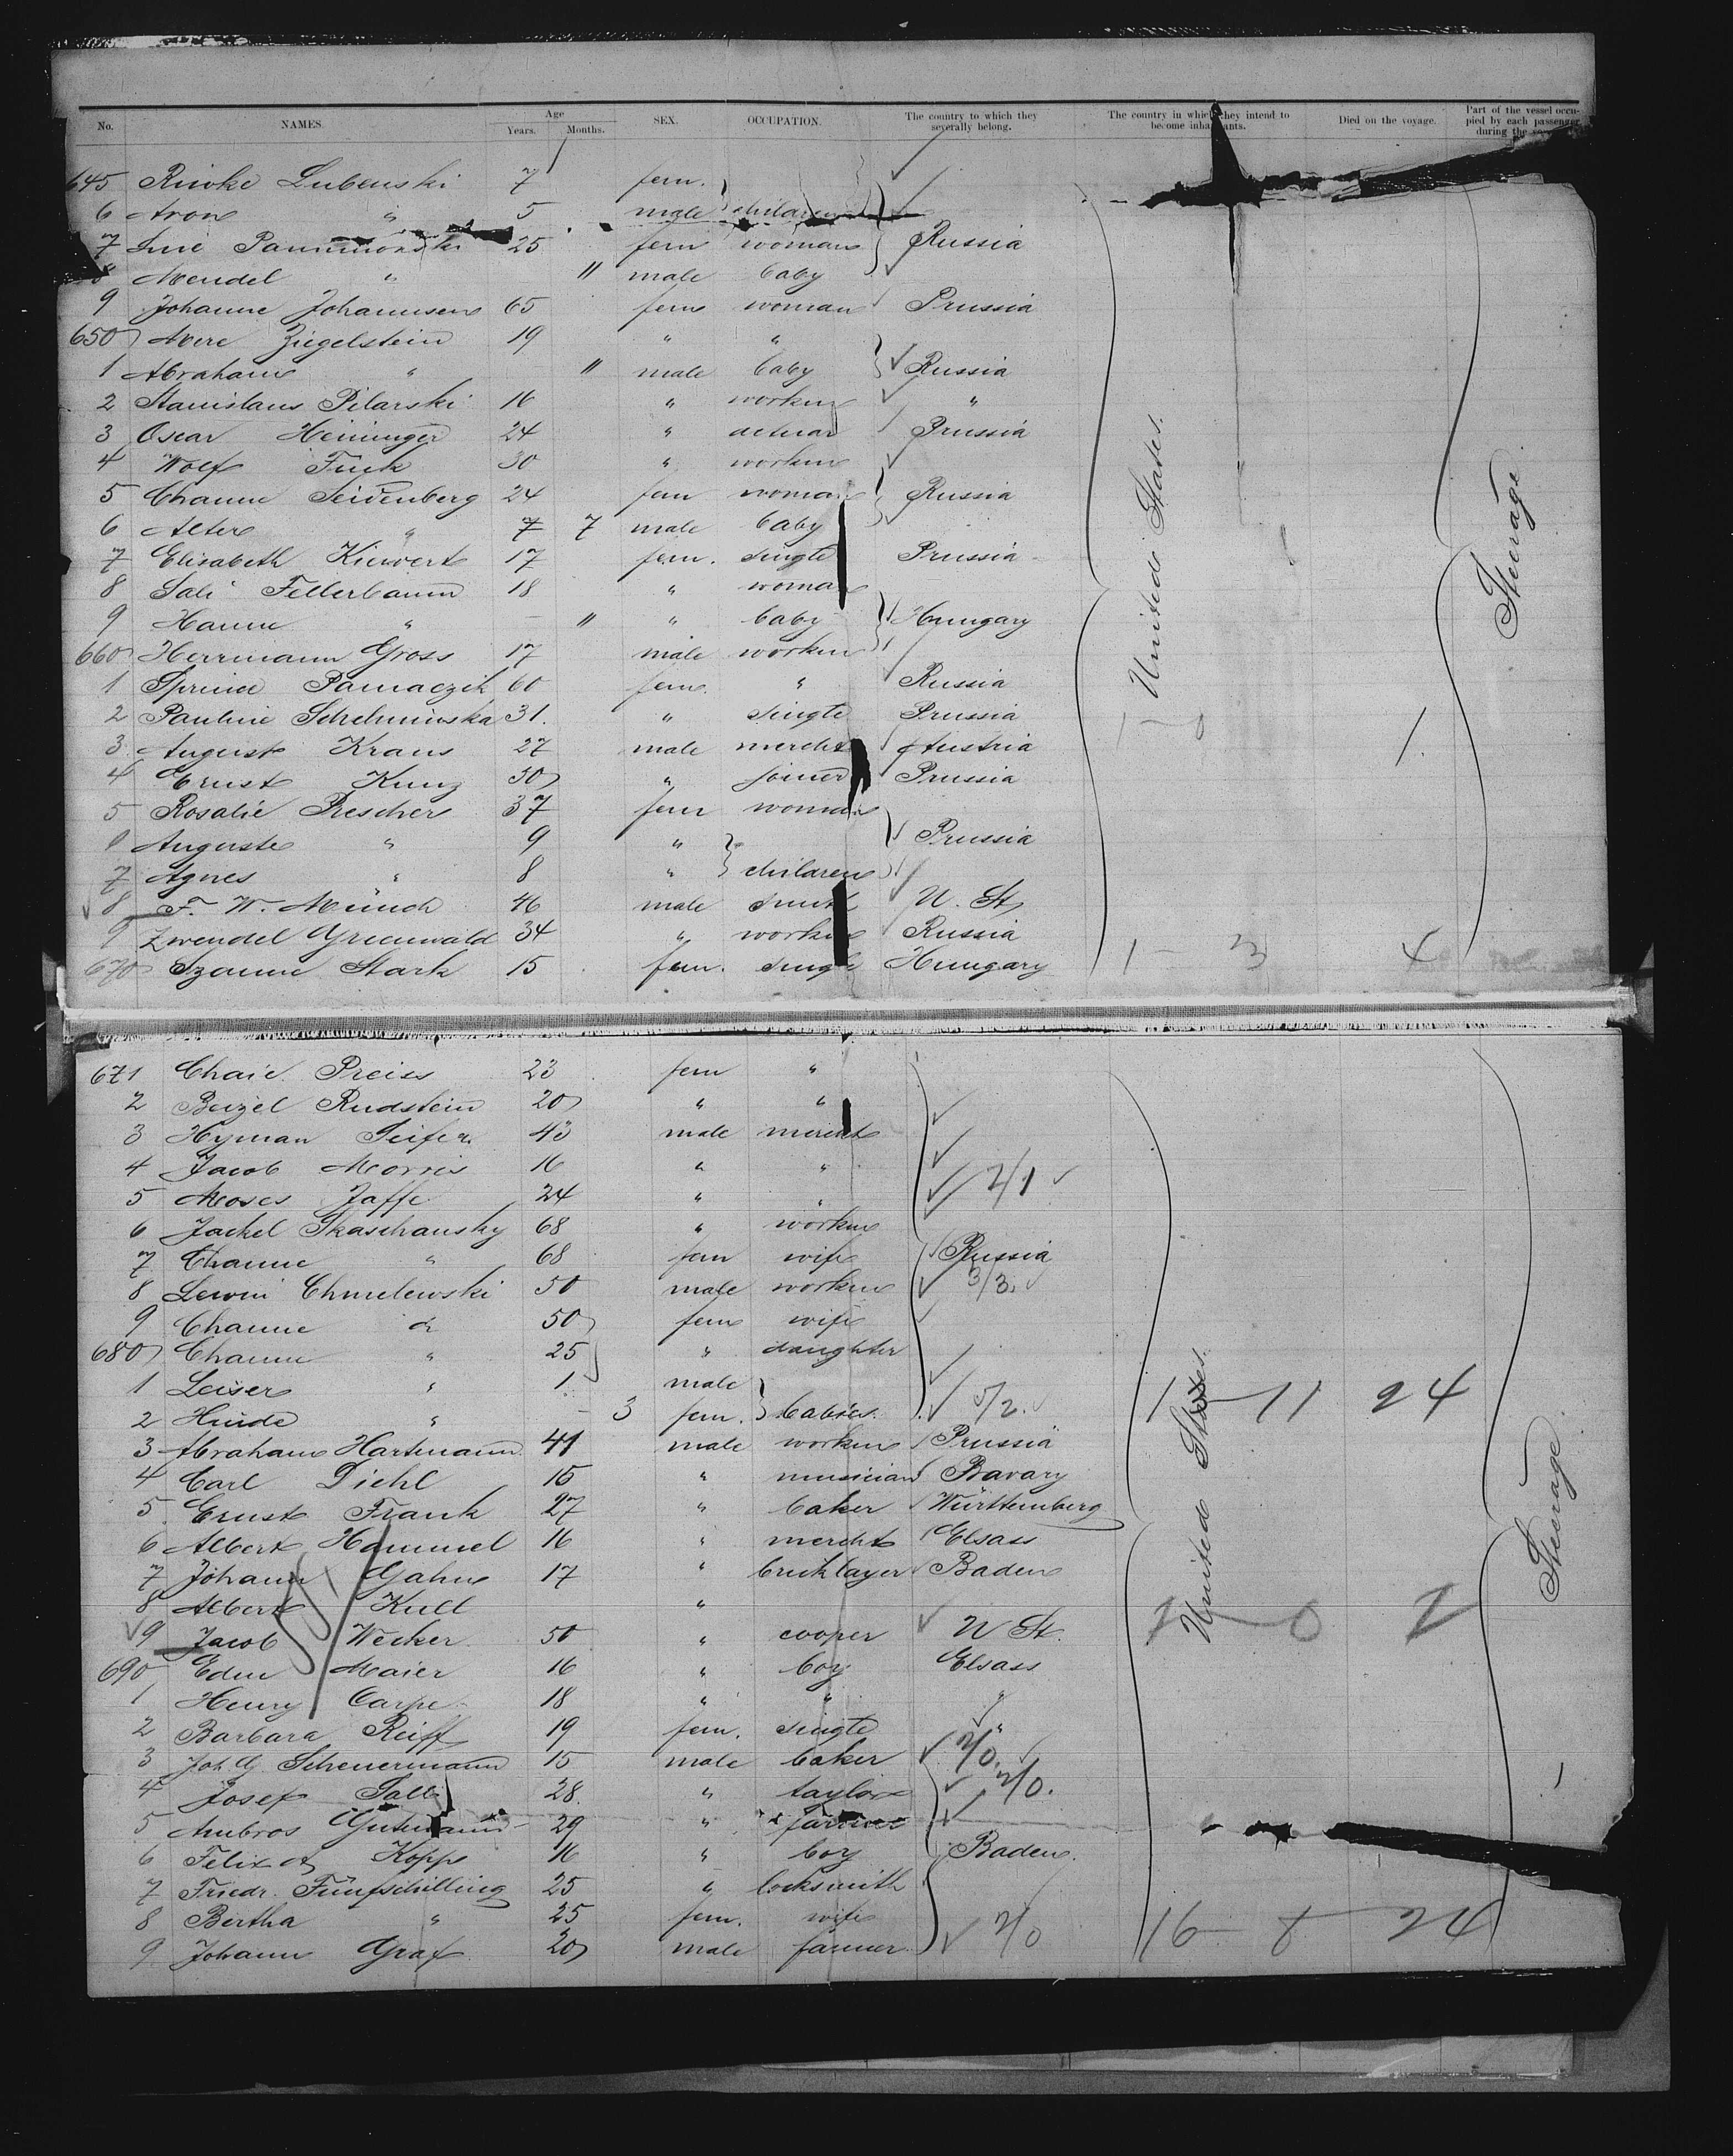 No. NAMES. Age Years. Months. SEX. OCCUPATION. The country to which they severally belong. The country in which they intend to become inhabitants. Died on the voyage. Part of the vessel occupied by each passenger during the
645 Riwke Lubenski 7 fem.
6 Aron " 5 male children
7 25 fem woman Russia
8 Mendel " 11 male baby
9 Johanne Johannsen 65 fem woman Prussia
650 Mere Ziegelstein 19 " "
1 Abraham " 11 male baby Russia
2 Stanislaus Pilarski 16 " workm "
3 Oscar Heininger 24 " Prussia
4 Wolf Finck 30 " workm
5 Channe Seidenberg 24 fem woman Russia
6 Alter " 7 7 male baby
7 Elisabeth Kiewert 17 fem. single Prussia
8 Sali Fellerbaum 18 " woman
9 Hanne " - 11 " baby Hungary
660 Herrmann Gross 17 male workm
1 60 fem. " Russia
2 Pauline 31. " single Prussia
3 August Kraus 27 male mercht Austria
4 Ernst Kunz 30 " joiner Prussia
5 Rosalie Prescher 37 fem woman
6 Auguste " 9 " Prussia
7 Agnes " 8 " children
8 F. W. Münch 46 male smith U. St
9 Zwendel Greenwald 34 " workm Russia
670 Szanne Stark 15 fem. single Hungary
United States.
Steerage
1 - 0 1.
1 - 3 4
671 Chaie Preiss 23 fem "
2 Beizel Rudstein 20 " "
3 Hyman 43 male mercht
4 Jacob Morris 16 " "
5 Moses Jaffe 24 " " 2/1
6 Jackel Skaschansky 68 " workm
7 Channe " 68 fem wife Russia
8 Lewin Chmelewski 50 male workm 3/3.
9 Channe " 50 fem wife
680 Channe " 25 " daughter
1 Leiser " 1 male
2 Hinde " - 3 fem. babies. 5/2. 1 - 11 24
3 Abraham Hartmann 41 male workm Prussia
4 Carl Diehl 15 " musician Bavary
5 Ernst Frank 27 " baker Württemberg
6 Albert Hammel 16 " mercht Elsass
7 Johann Gahn 17 " bricklayer Baden
8 Albert Kull "
9 Jacob Wecker 50 " cooper U St. 2 - 0 2
690 Edm Maier 16 " boy Elsass
1 Henry Carpe 18 " " "
2 Barbara Reiff 19 fem. single "
3 Joh. G. Scheuermann 15 male baker 2/0.
4 Josef 28. " taylor 2/0.
5 Ambros Gutmann 29 " farmer
6 Felix A Kopp 16 " boy Baden.
7 Friedr. Fünfschilling 25 " locksmith
8 Bertha " 25 fem. wife
9 Johann Graf 20 male farmer 2/0 16 - 8 - 24
United States.
Steerage